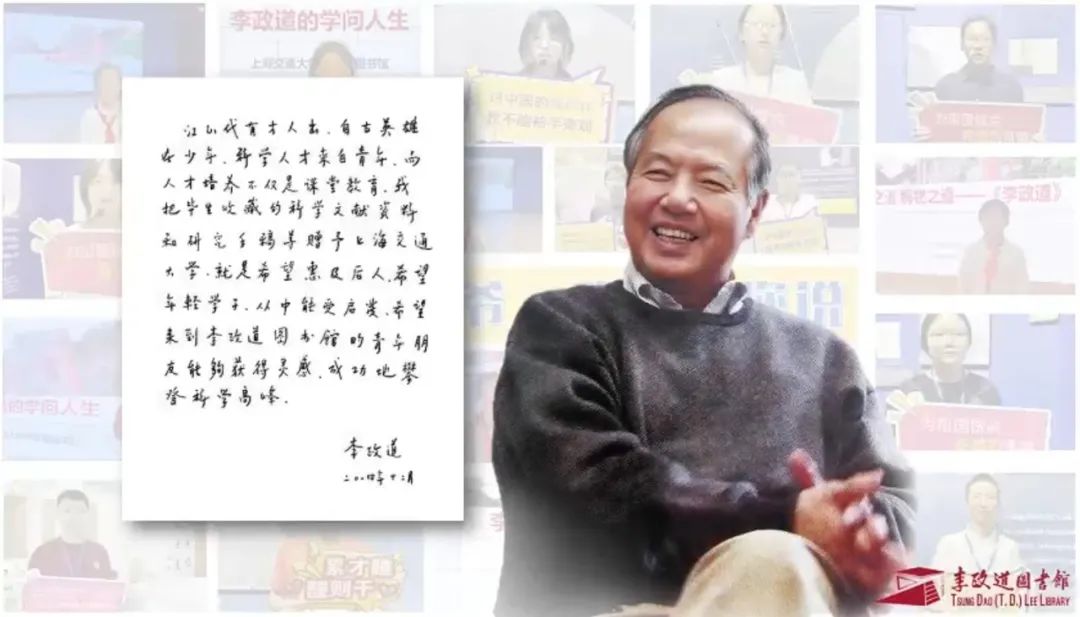 李政道的学问人生
江山代有才人出，自古英雄
出少年。科学人才来自青年，而
人才培养不仅是课堂教育。我
把毕生收藏的科学文献资料
和研究手稿等赠予上海交通
大学，就是希望惠及后人，希望
年轻学子，从中能受启发，希望
来到李政道图书馆的青年朋
友能夠获得灵感，成功地攀
登科学高峰.
李政道
——《李政道》
的学问人生
累才睡
醒则干
李政道圖書館
TSUNG DAO (T. D.) LEE LIBRARY